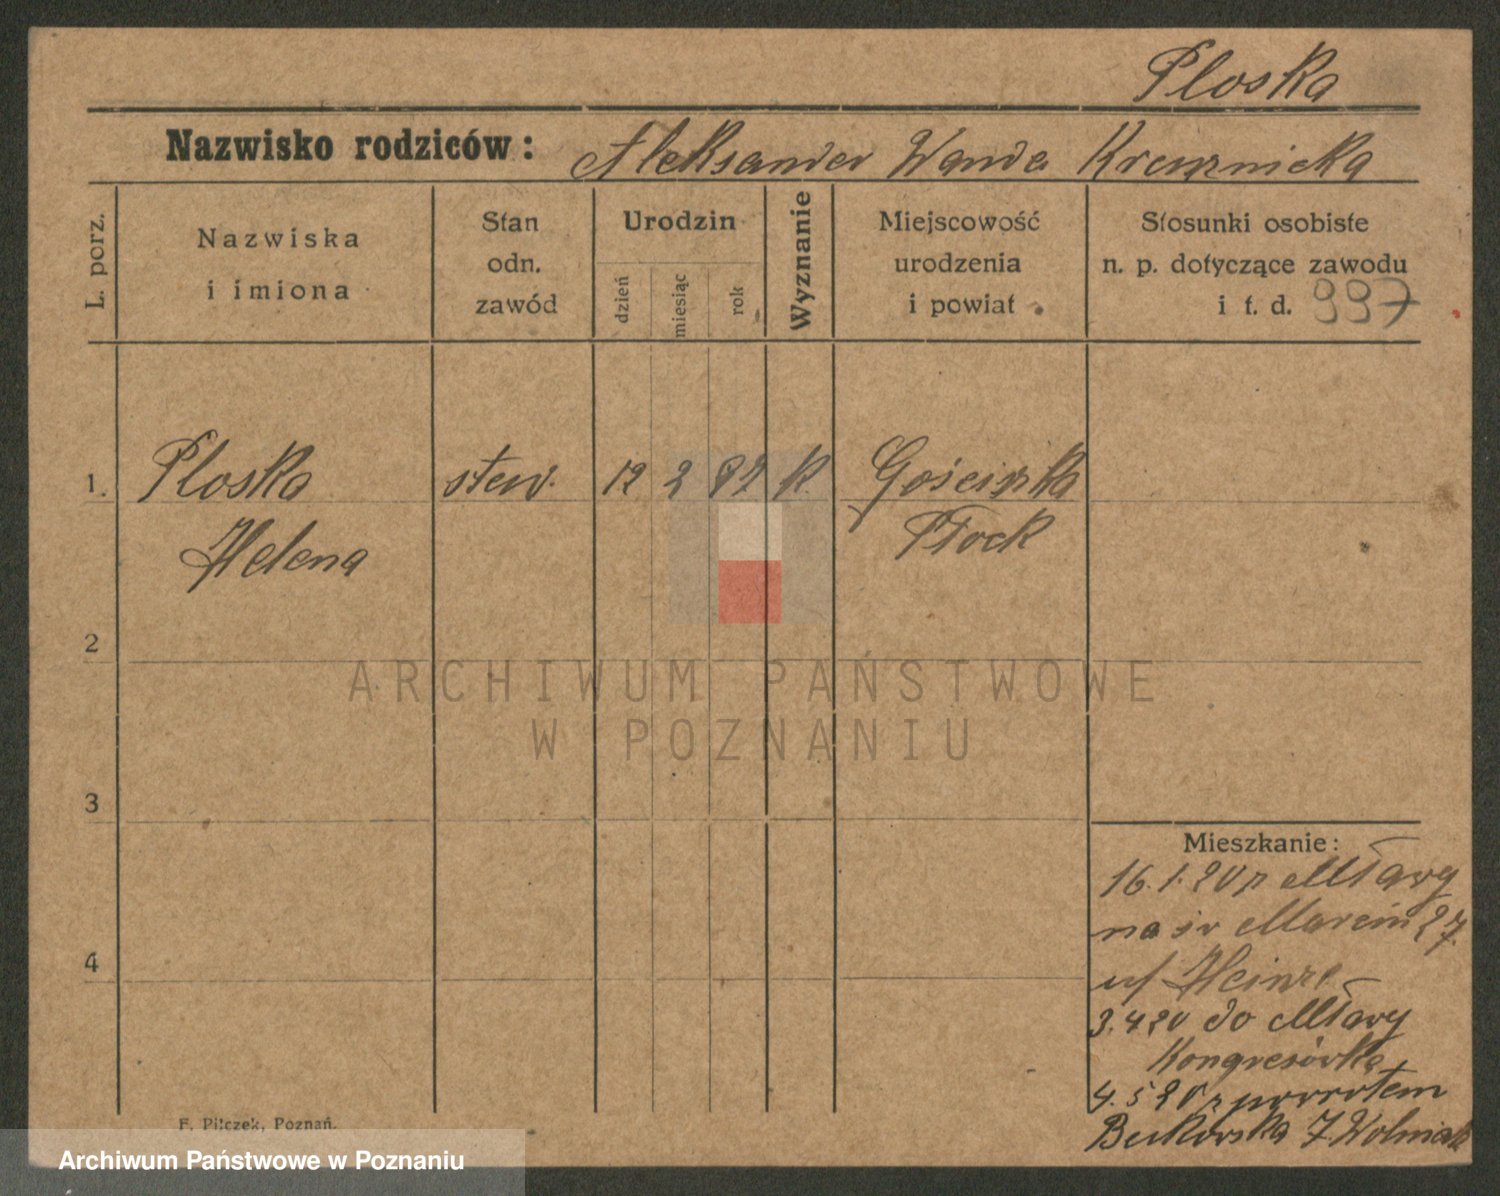 Ploska
Nazwisko rodziców: Aleksander Wanda
L. porz.
Nazwiska
i imiona
Stan
odn.
zawód
Urodzin
dzień
miesiąc
rok
Wyznanie
Miejscowość
urodzenia
i powiat
Stosunki osobiste
n. p. dotyczące zawodu
i t. d. 997
1. Ploska sten. 12 2 92 k.
Helena Płock
2
3
4
ARCHIWUM PAŃSTWOWE
W POZNANIU
Mieszkanie:
16.1.20 z Mławy
na św Marcin 27.
u/ Heinze
3.4 20 do Mławy
Kongresówka
4.5 20 z powrotem
Bukowska 7 Wolniak
F. Pilczek, Poznań.
Archiwum Państwowe w Poznaniu